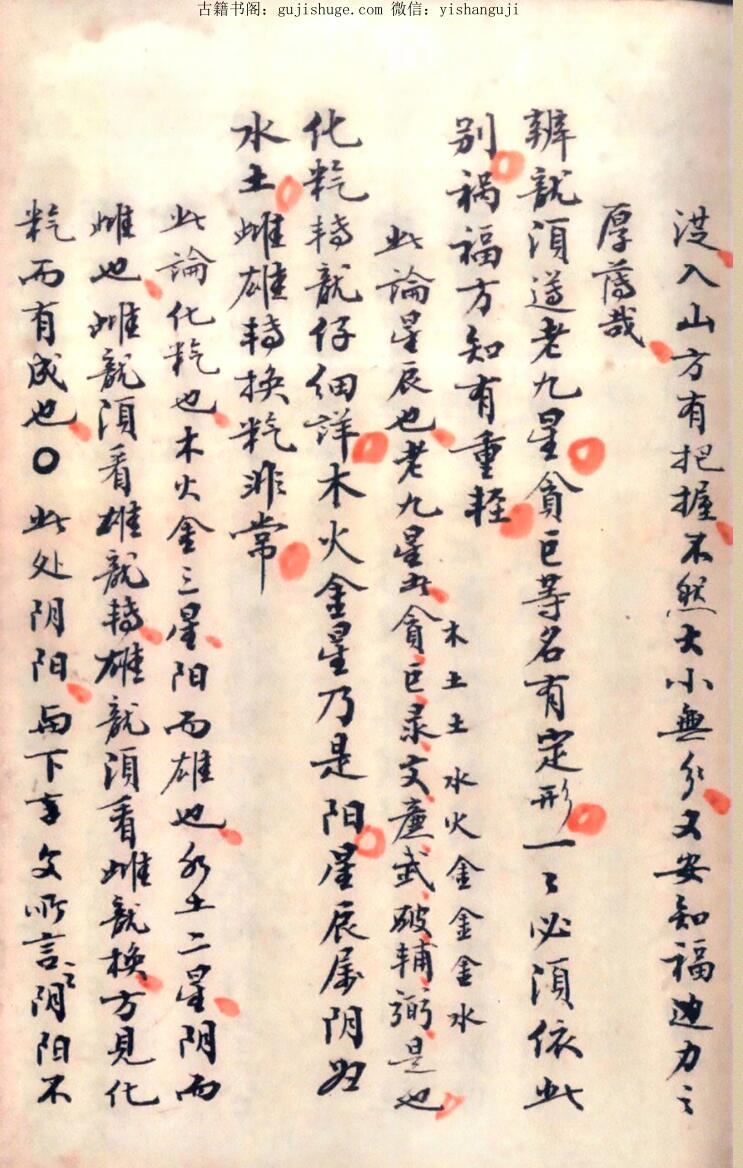 古籍书阁: gujishuge.com 微信: yishanguji
涉入山方有把握不然大小無分又安知福力之
厚薄哉
辨龍須遵老九星貪巨等名有定形一〻必須依此
别禍福方知有重軽
此論星辰也老九星此貪巨录文廉武破辅弼是也
木土土水火金金金水
化炁轉龍仔细詳木火金星乃是阳星辰属阴
水土雌雄轉换炁非常
此論化炁也木火金三星阳而雄也水土二星阴而
雌也雌龍須看雄龍轉雄龍須看雌龍换方見化
炁而有成也〇此处阴阳与下文所言之阴阳不